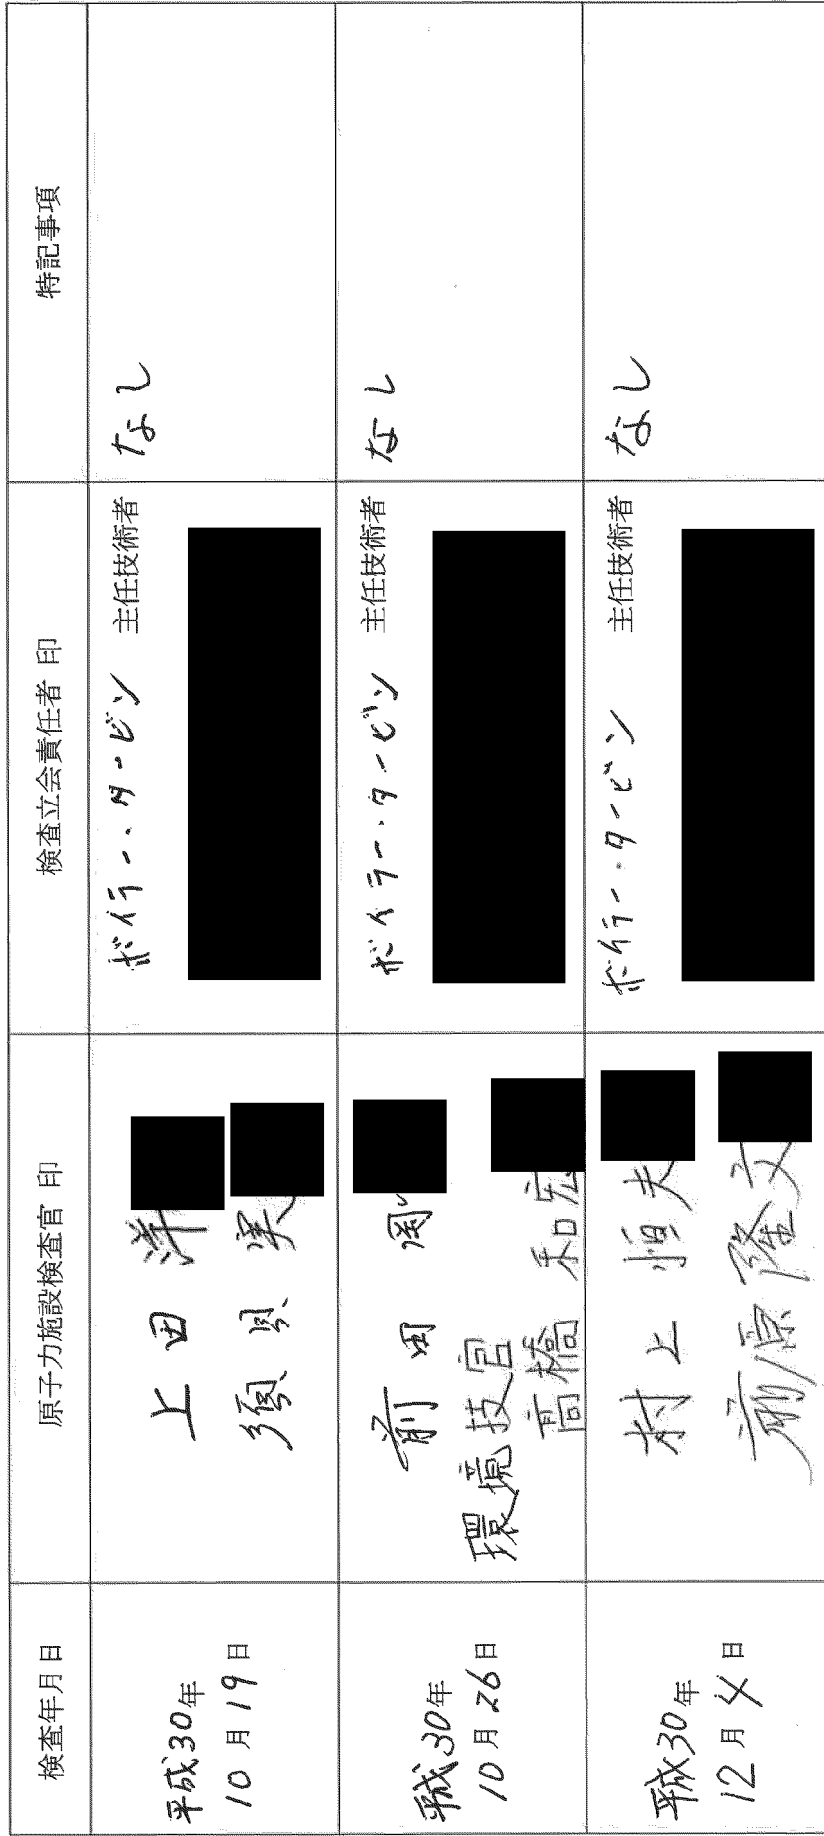 検査年月日
原子力施設検査官 印
検査立会責任者 印
特記事項
平成30年
10月19日
上田 洋
須貝 実
ボイラー・タービン 主任技術者
なし
平成30年
10月26日
前田
環境技官
高橋 和宏
ボイラー・タービン 主任技術者
なし
平成30年
12月4日
村上 恒夫
前原 隆文
ボイラー・タービン 主任技術者
なし